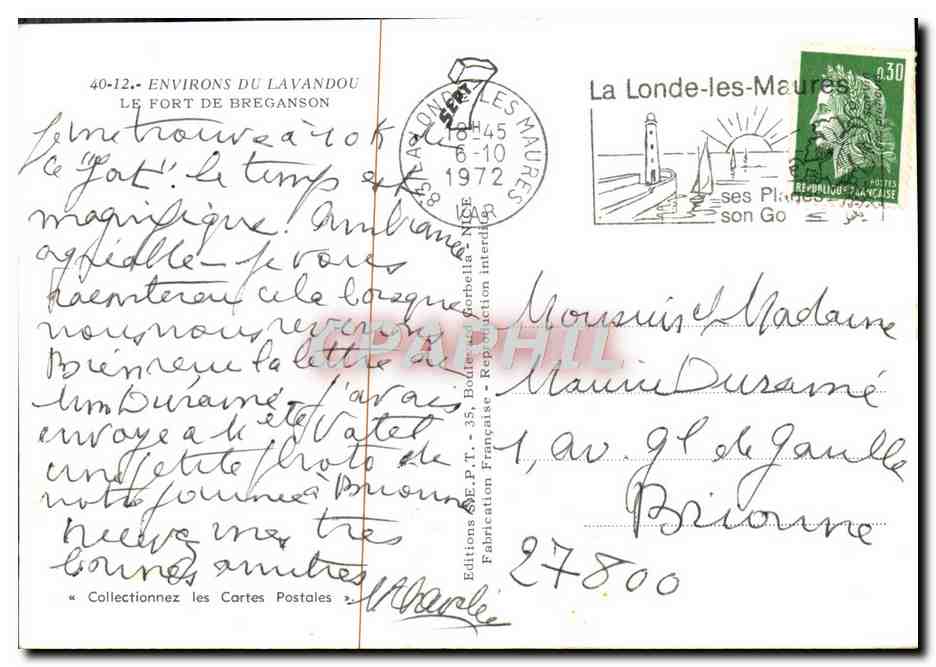 40-12.- ENVIRONS DU LAVANDOU
LE FORT DE BREGANSON
Je me trouve à 10 K de
ce "fort". le temps est
magnifique. Ambiance
agréable - Je vous
raconterai cela lorsque
nous nous reverrons
Bien reçu la lettre de
Mm Duramé. J'avais
envoyé à M et Vatel
une petite photo de
notre journée à Brionne
Recevez mes très
bonnes amitiés
« Collectionnez les Cartes Postales »
SEPT
83 LA LONDE LES MAURES
18H45
6-10
1972
VAR
La Londe-les-Maures
ses Plages
son Go
0,30
POSTES
REPUBLIQUE FRANÇAISE
Editions S.E.P.T. - 35, Boulevard Gorbella - NICE
Fabrication Française - Reproduction interdite
CPAPHIL
Monsieur et Madame
Maurice Duramé
1, av. Gl de Gaulle
Brionne
27800